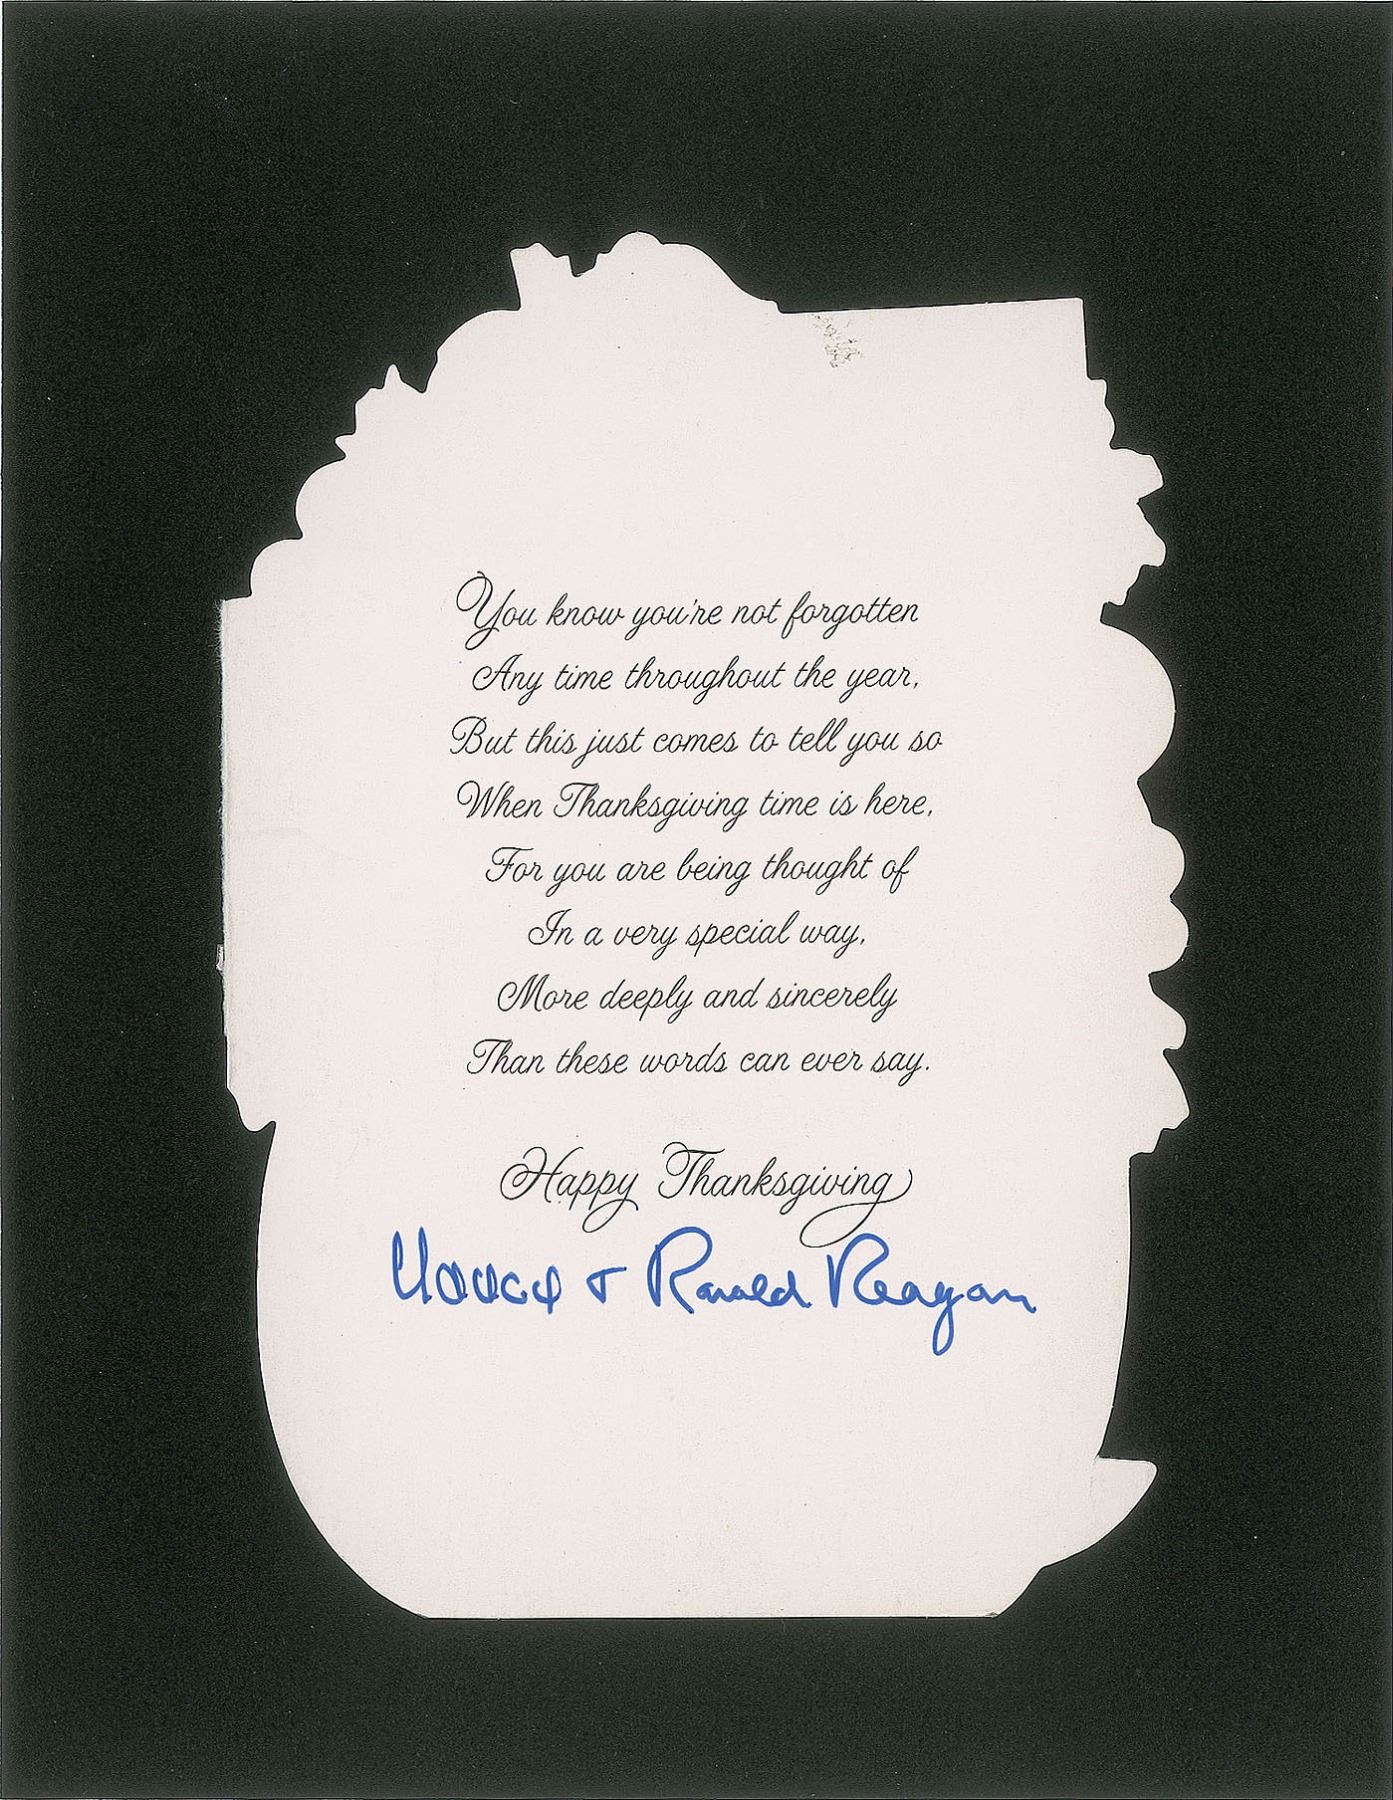 You know you're not forgotten
Any time throughout the year,
But this just comes to tell you so
When Thanksgiving time is here,
For you are being thought of
In a very special way,
More deeply and sincerely
Than these words can ever say.
Happy Thanksgiving
Nancy + Ronald Reagan